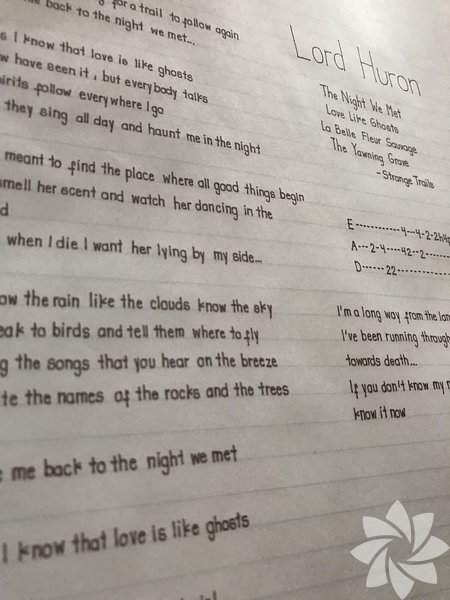 for a trail to follow again
me back to the night we met...
I know that love is like ghosts
have seen it, but everybody talks
follow everywhere I go
they sing all day and haunt me in the night
meant to find the place where all good things begin
her scent and watch her dancing in the
when I die I want her lying by my side...
the rain like the clouds know the sky
to birds and tell them where to fly
the songs that you hear on the breeze
the names of the rocks and the trees
me back to the night we met
I know that love is like ghosts
Lord Huron
The Night We Met
Love Like Ghosts
La Belle Fleur Sauvage
The Yawning Grave
~Strange Trails
E------------4---4-2-2h4p
A---2-4----42--2-------
D------22------------
I'm a long way from the
I've been running through
towards death...
If you don't know my
know it now